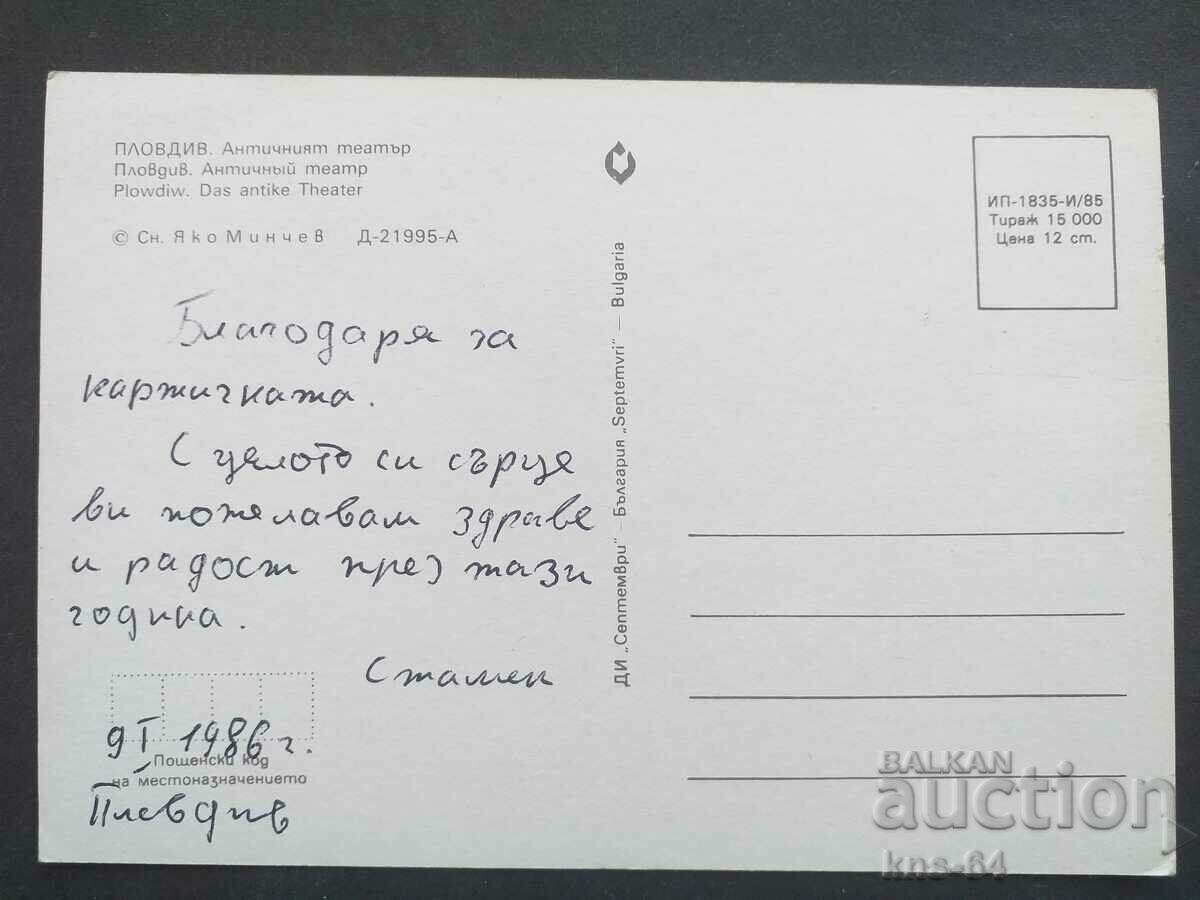 ПЛОВДИВ. Античният театър
Пловдив. Античный театр
Plowdiw. Das antike Theater
© Сн. Яко Минчев Д-21995-А
ИП-1835-И/85
Тираж 15 000
Цена 12 ст.
Благодаря за
картичката.
С цялото си сърце
ви пожелавам здраве
и радост през тази
година.
Стамен
9 I 1986 г.
Пощенски код
на местоназначението
Пловдив
ДИ „Септември" – България „Septemvri" – Bulgaria
BALKAN
auction
kns-64